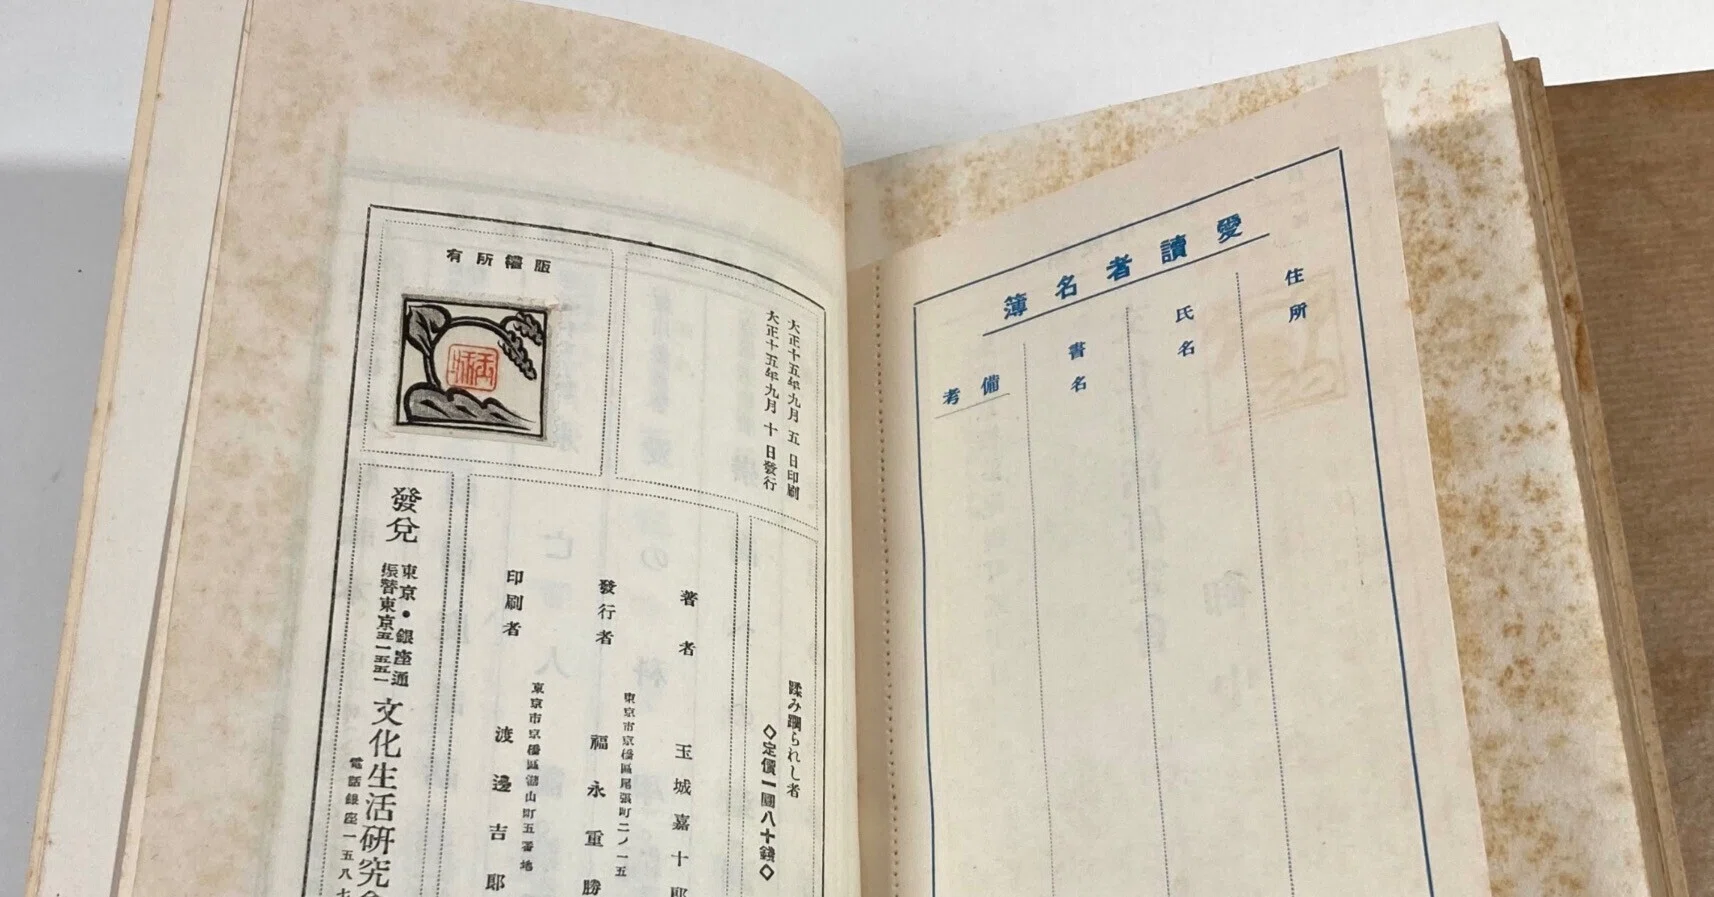 愛讀者名簿
住所
氏名
書名
備考
大正十五年九月五日印刷
大正十五年九月十日發行
版權所有
蹂み躙られし者
◇定價一圓八十錢◇
著者 玉城嘉十郎
發行者 東京市京橋區尾張町二ノ一五 福永重勝
印刷者 東京市京橋區 山町五番地 渡邊吉郎
發兌 東京・銀座通
振替東京五一五五一
文化生活研究會
電話銀座一五八七